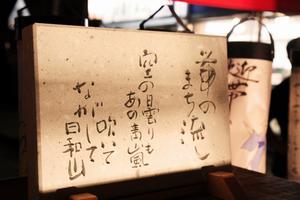 夢の
まち流し
空の曇りも
あの青嵐
吹いて
ながして
日和山